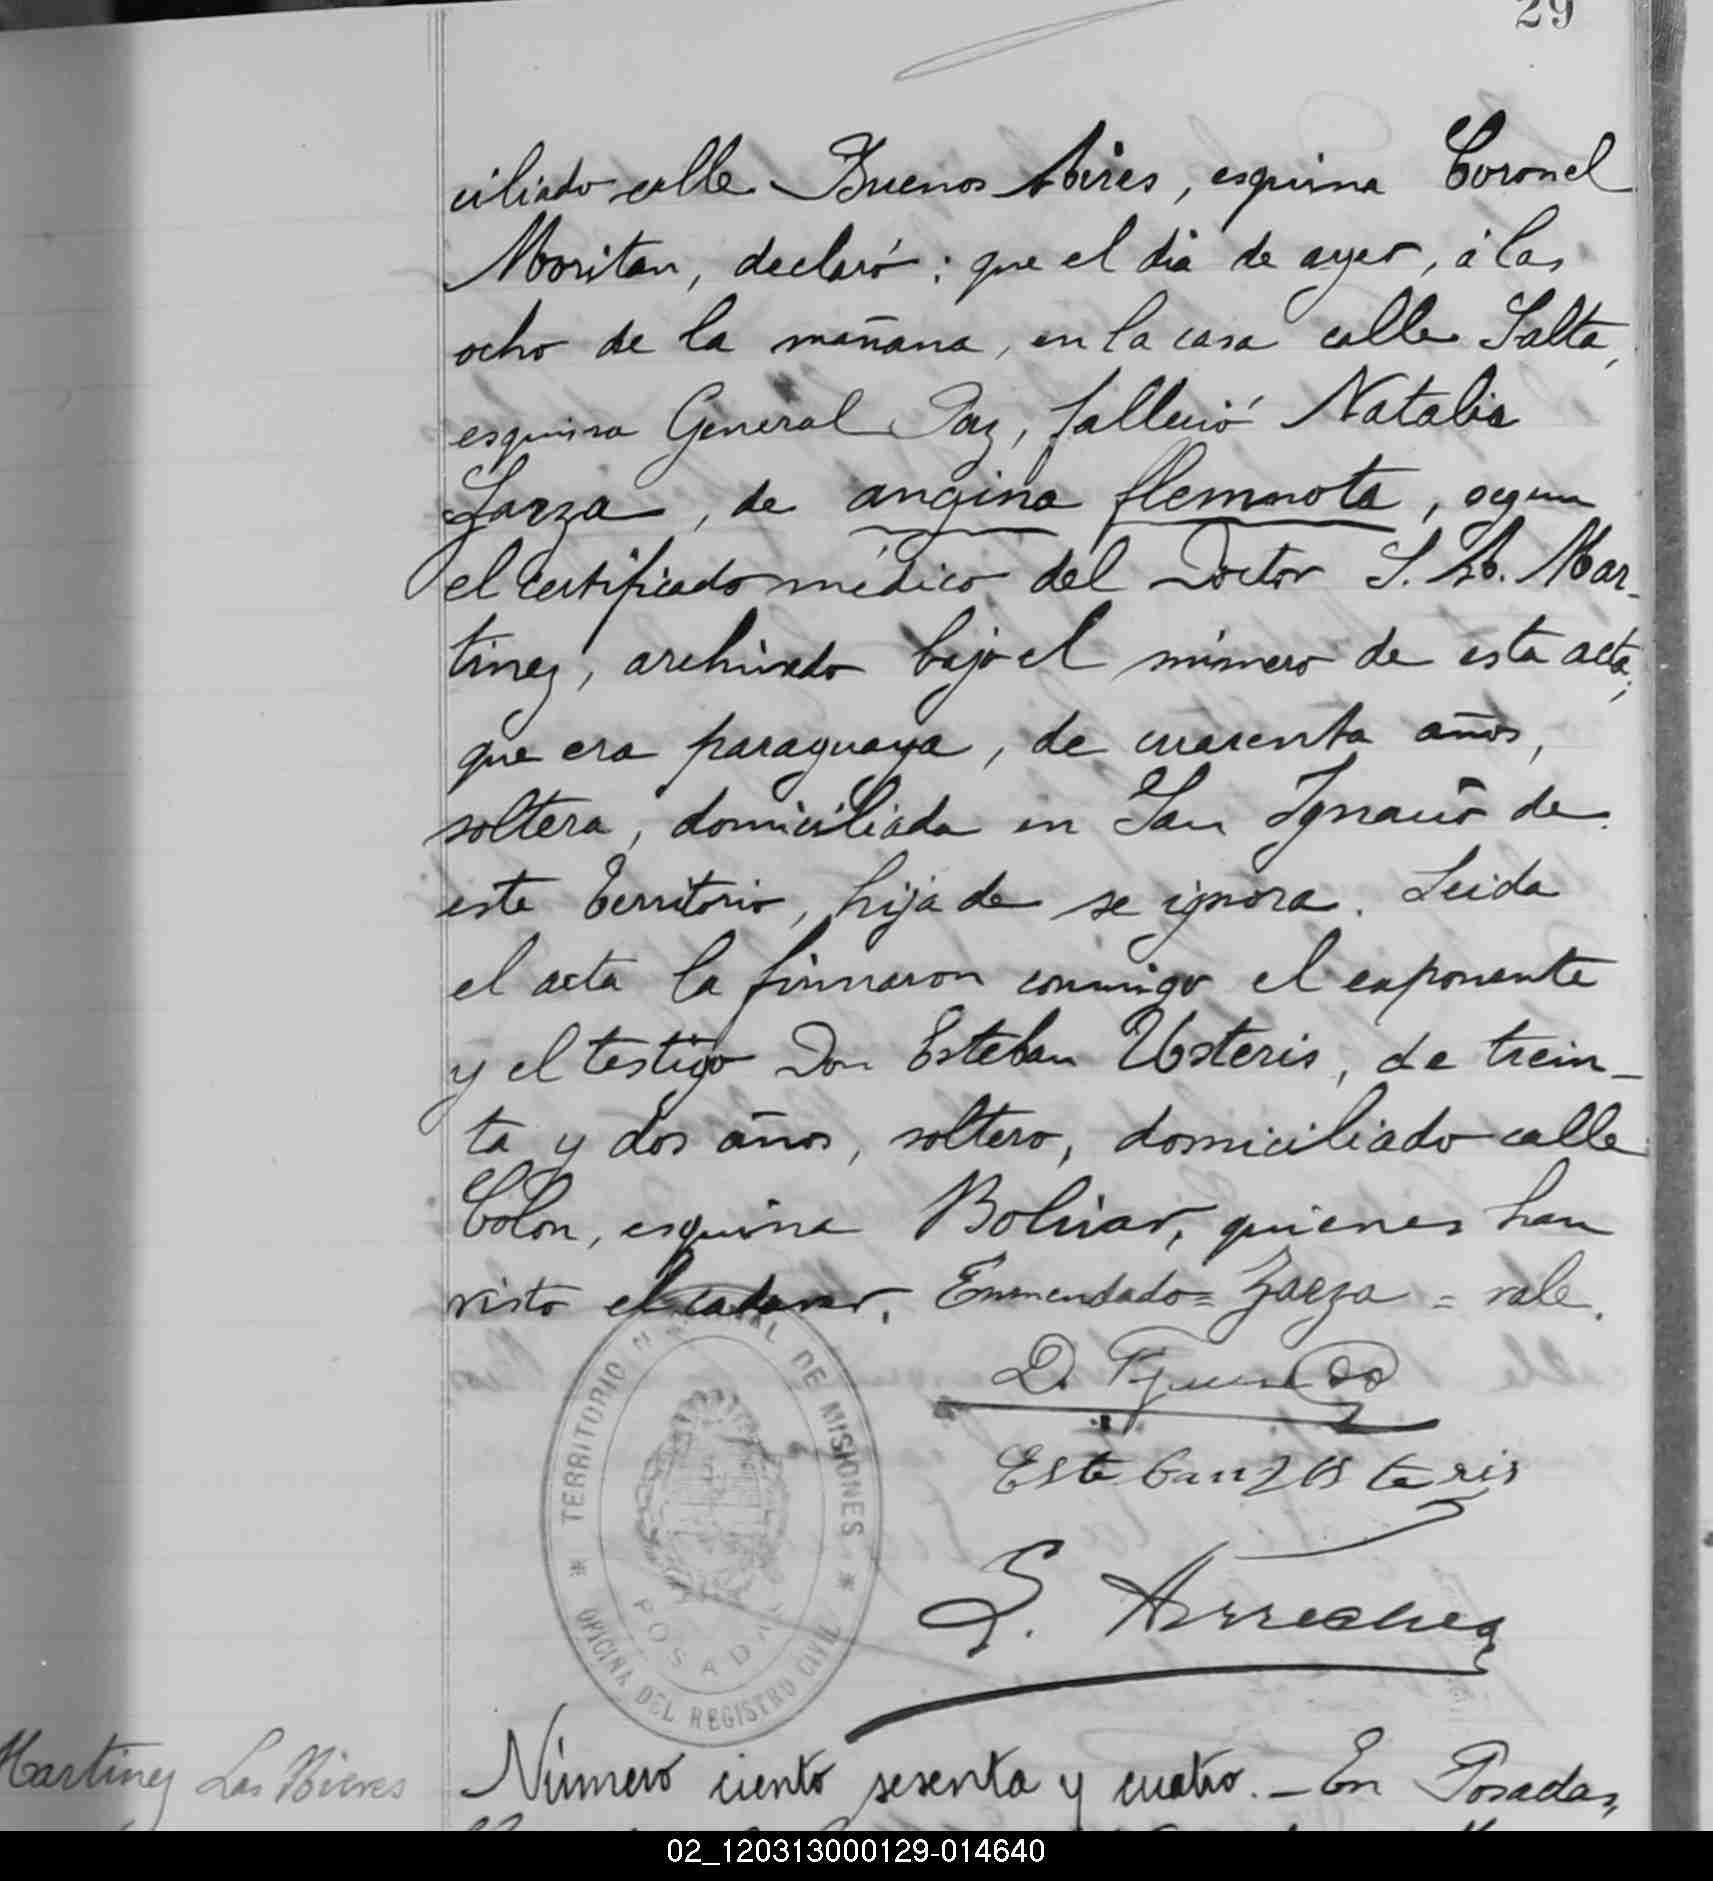 29
ciliado calle Buenos Aires, esquina Coronel
Moritan, declaró: que el dia de ayer, á las
ocho de la mañana, en la casa calle Salta,
esquina General Paz, falleció Natalia
Zarza, de angina flemnota, segun
el certificado médico del Doctor S. A. Mar-
tinez, archivado bajo el número de esta acta;
que era paraguaya, de cuarenta años,
soltera, domiciliada en San Ignacio de
este Territorio, hija de se ignora. Leida
el acta la firmaron conmigo el exponente
y el testigo Don Esteban Usteris, de trein-
ta y dos años, soltero, domiciliado calle
Colon, esquina Bolivar, quienes han
visto el cadaver. Enmendado = Zarza = vale.
D. Figueredo
Esteban Usteris
S. Arrechea
TERRITORIO NACIONAL DE MISIONES
POSADAS
OFICINA DEL REGISTRO CIVIL
Martinez Las Nieves
Número ciento sesenta y cuatro. - En Posadas,
02_120313000129-014640